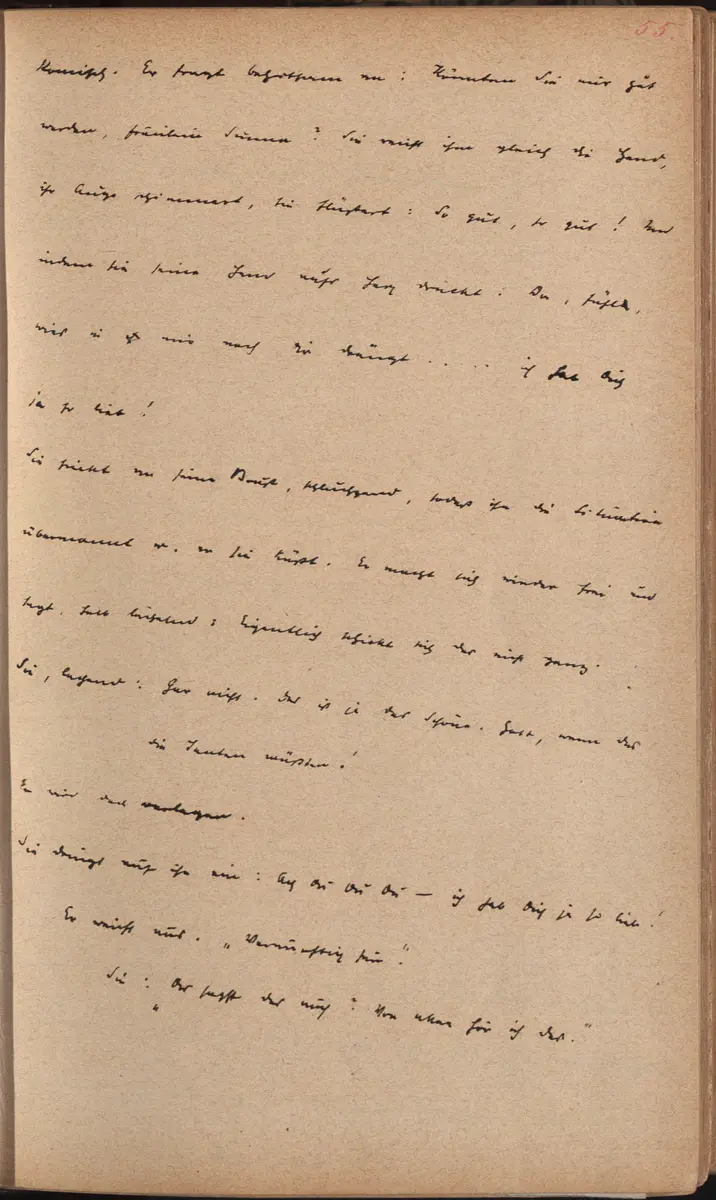 55.
komisch. Er fragt behutsam an: Könnten Sie mir gut
werden, Fräulein Sunna? Sie reicht ihm gleich die Hand,
ihr Auge schimmert, sie flüstert: So gut, so gut! Und
indem sie seine Hand aufs Herz drückt: Du, fühle,
wie es mir nach dir drängt .... ich hab Dich
ja so lieb!
Sie sinkt an seine Brust, schluchzend, sodaß ihn die Situation
übermannt u. er sie küßt. Er macht sich wieder frei und
sagt, halb lächelnd: Eigentlich schickt sich das nicht ganz.
Sie, lachend: Gar nicht. Das ist ja das Schöne. Gott, wenn das
die Tanten wüßten!
Er wird verlegen.
Sie dringt auf ihn ein: Ach Du Du Du — ich hab Dich ja so lieb!
Er weicht aus. „Vernünftig sein."
Sie: „Du sagst das auch? Von allen hör ich das."